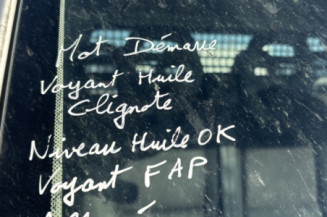 Mot Démarre
Voyant Huile
Clignote
Niveau Huile OK
Voyant FAP